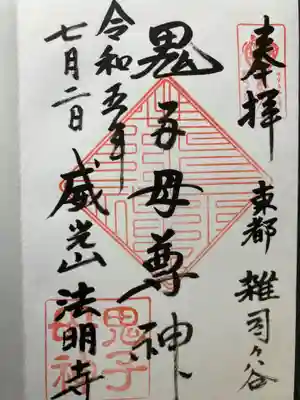 奉拝
東都 雑司々谷
鬼子母尊神
令和五年
七月二日
威光山 法明寺
鬼子
母神